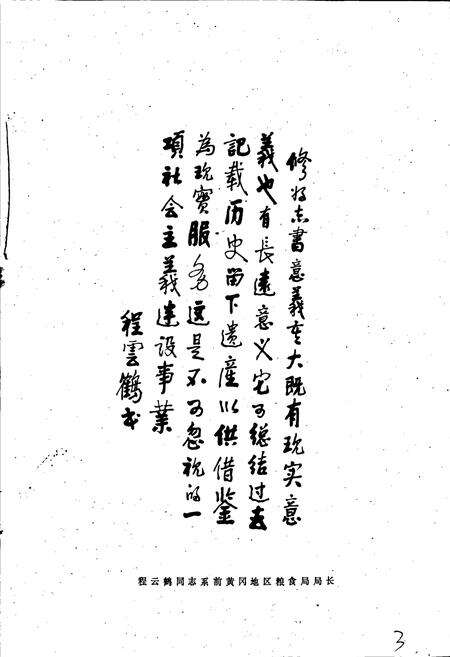 修好志書意義重大既有现实意
義也有長遠意义它可總结过去
記载历史留下遗產以供借鉴
為现實服务这是不可忽視的一
項社会主義建设事業
程雲鶴书
程云鹤同志系前黄冈地区粮食局局长
3